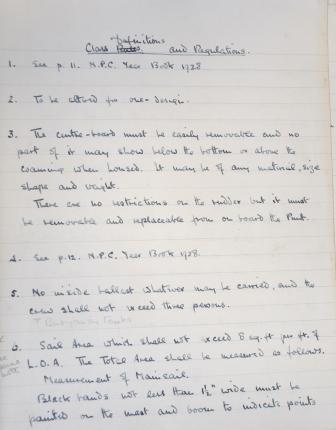 Definitions
Class Rules and Regulations.
1. See p. 11. N.P.C. Year Book 1928
2. To be altered for one-design.
3. The centre-board must be easily removable and no
part of it may show below the bottom or above the
coaming when housed. It may be of any material, size
shape and weight.
There are no restrictions on the rudder but it must
be removable and replaceable from on board the Punt.
4. See p. 12. N.P.C. Year Book 1928.
5. No inside ballast whatever may be carried, and the
crew shall not exceed three persons.
? Buoyancy Tanks
6. Sail Area which shall not exceed 8 sq. ft. per ft. of
L.O.A. The Total Area shall be measured as follows.
Measurement of Mainsail.
Black bands not less than 1½" wide must be
painted on the mast and boom to indicate points